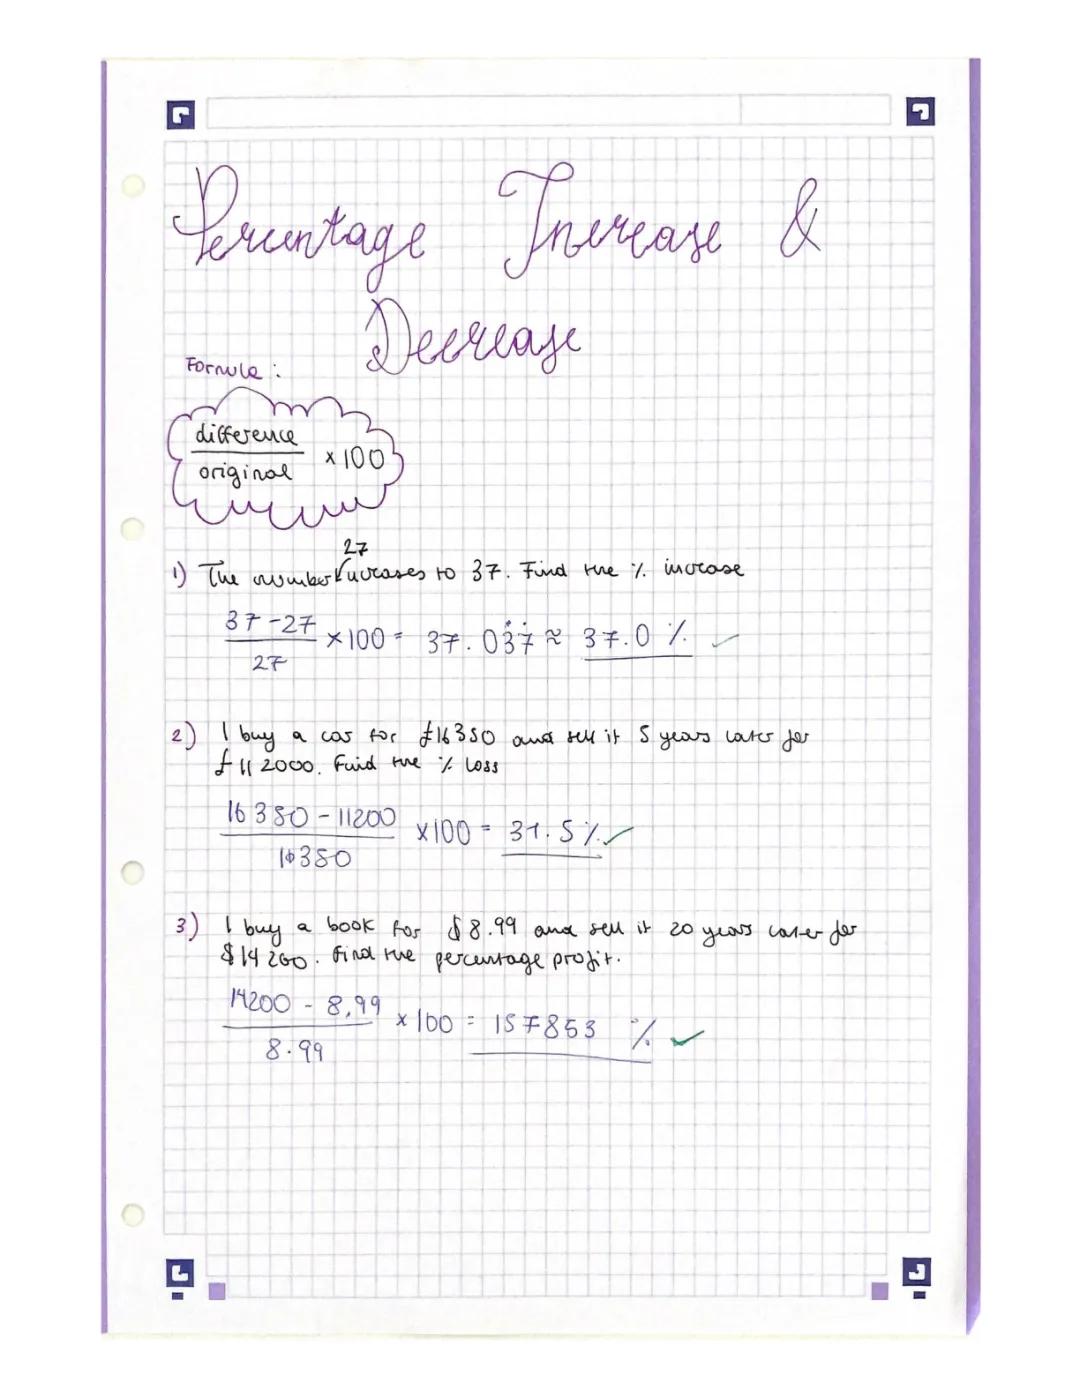 Percentage Increase &
Decrease
Formula :
difference
original
× 100
27
1) The number increases to 37. Find the % increase
37 - 27
27
× 100 = 37.037 ≈ 37.0 %
2) I buy a car for £16350 and sell it 5 years later for
£112000. Find the % loss
16350 - 11200
16350
× 100 = 31.5 %
3) I buy a book for $8.99 and sell it 20 years later for
$14200. Find the percentage profit.
14200 - 8.99
8.99
× 100 = 157853 %